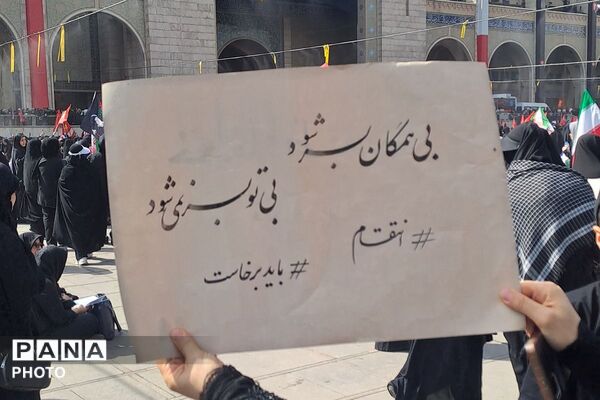 بی همگان بسر شود
بی تو بسر نمی شود
#انتقام
#باید برخاست
PANA
PHOTO